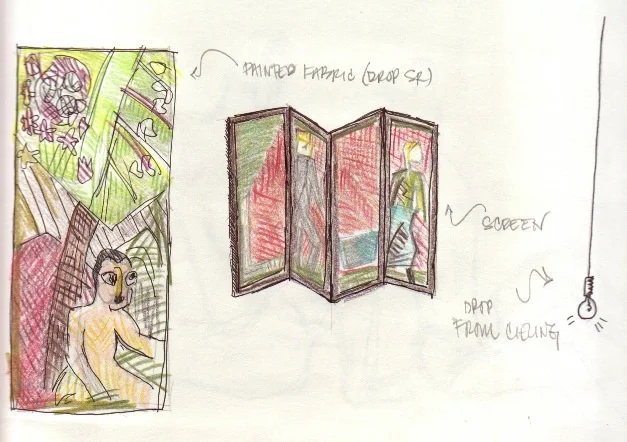 PAINTED FABRIC (DROP SR)
SCREEN
DROP
FROM CIELING